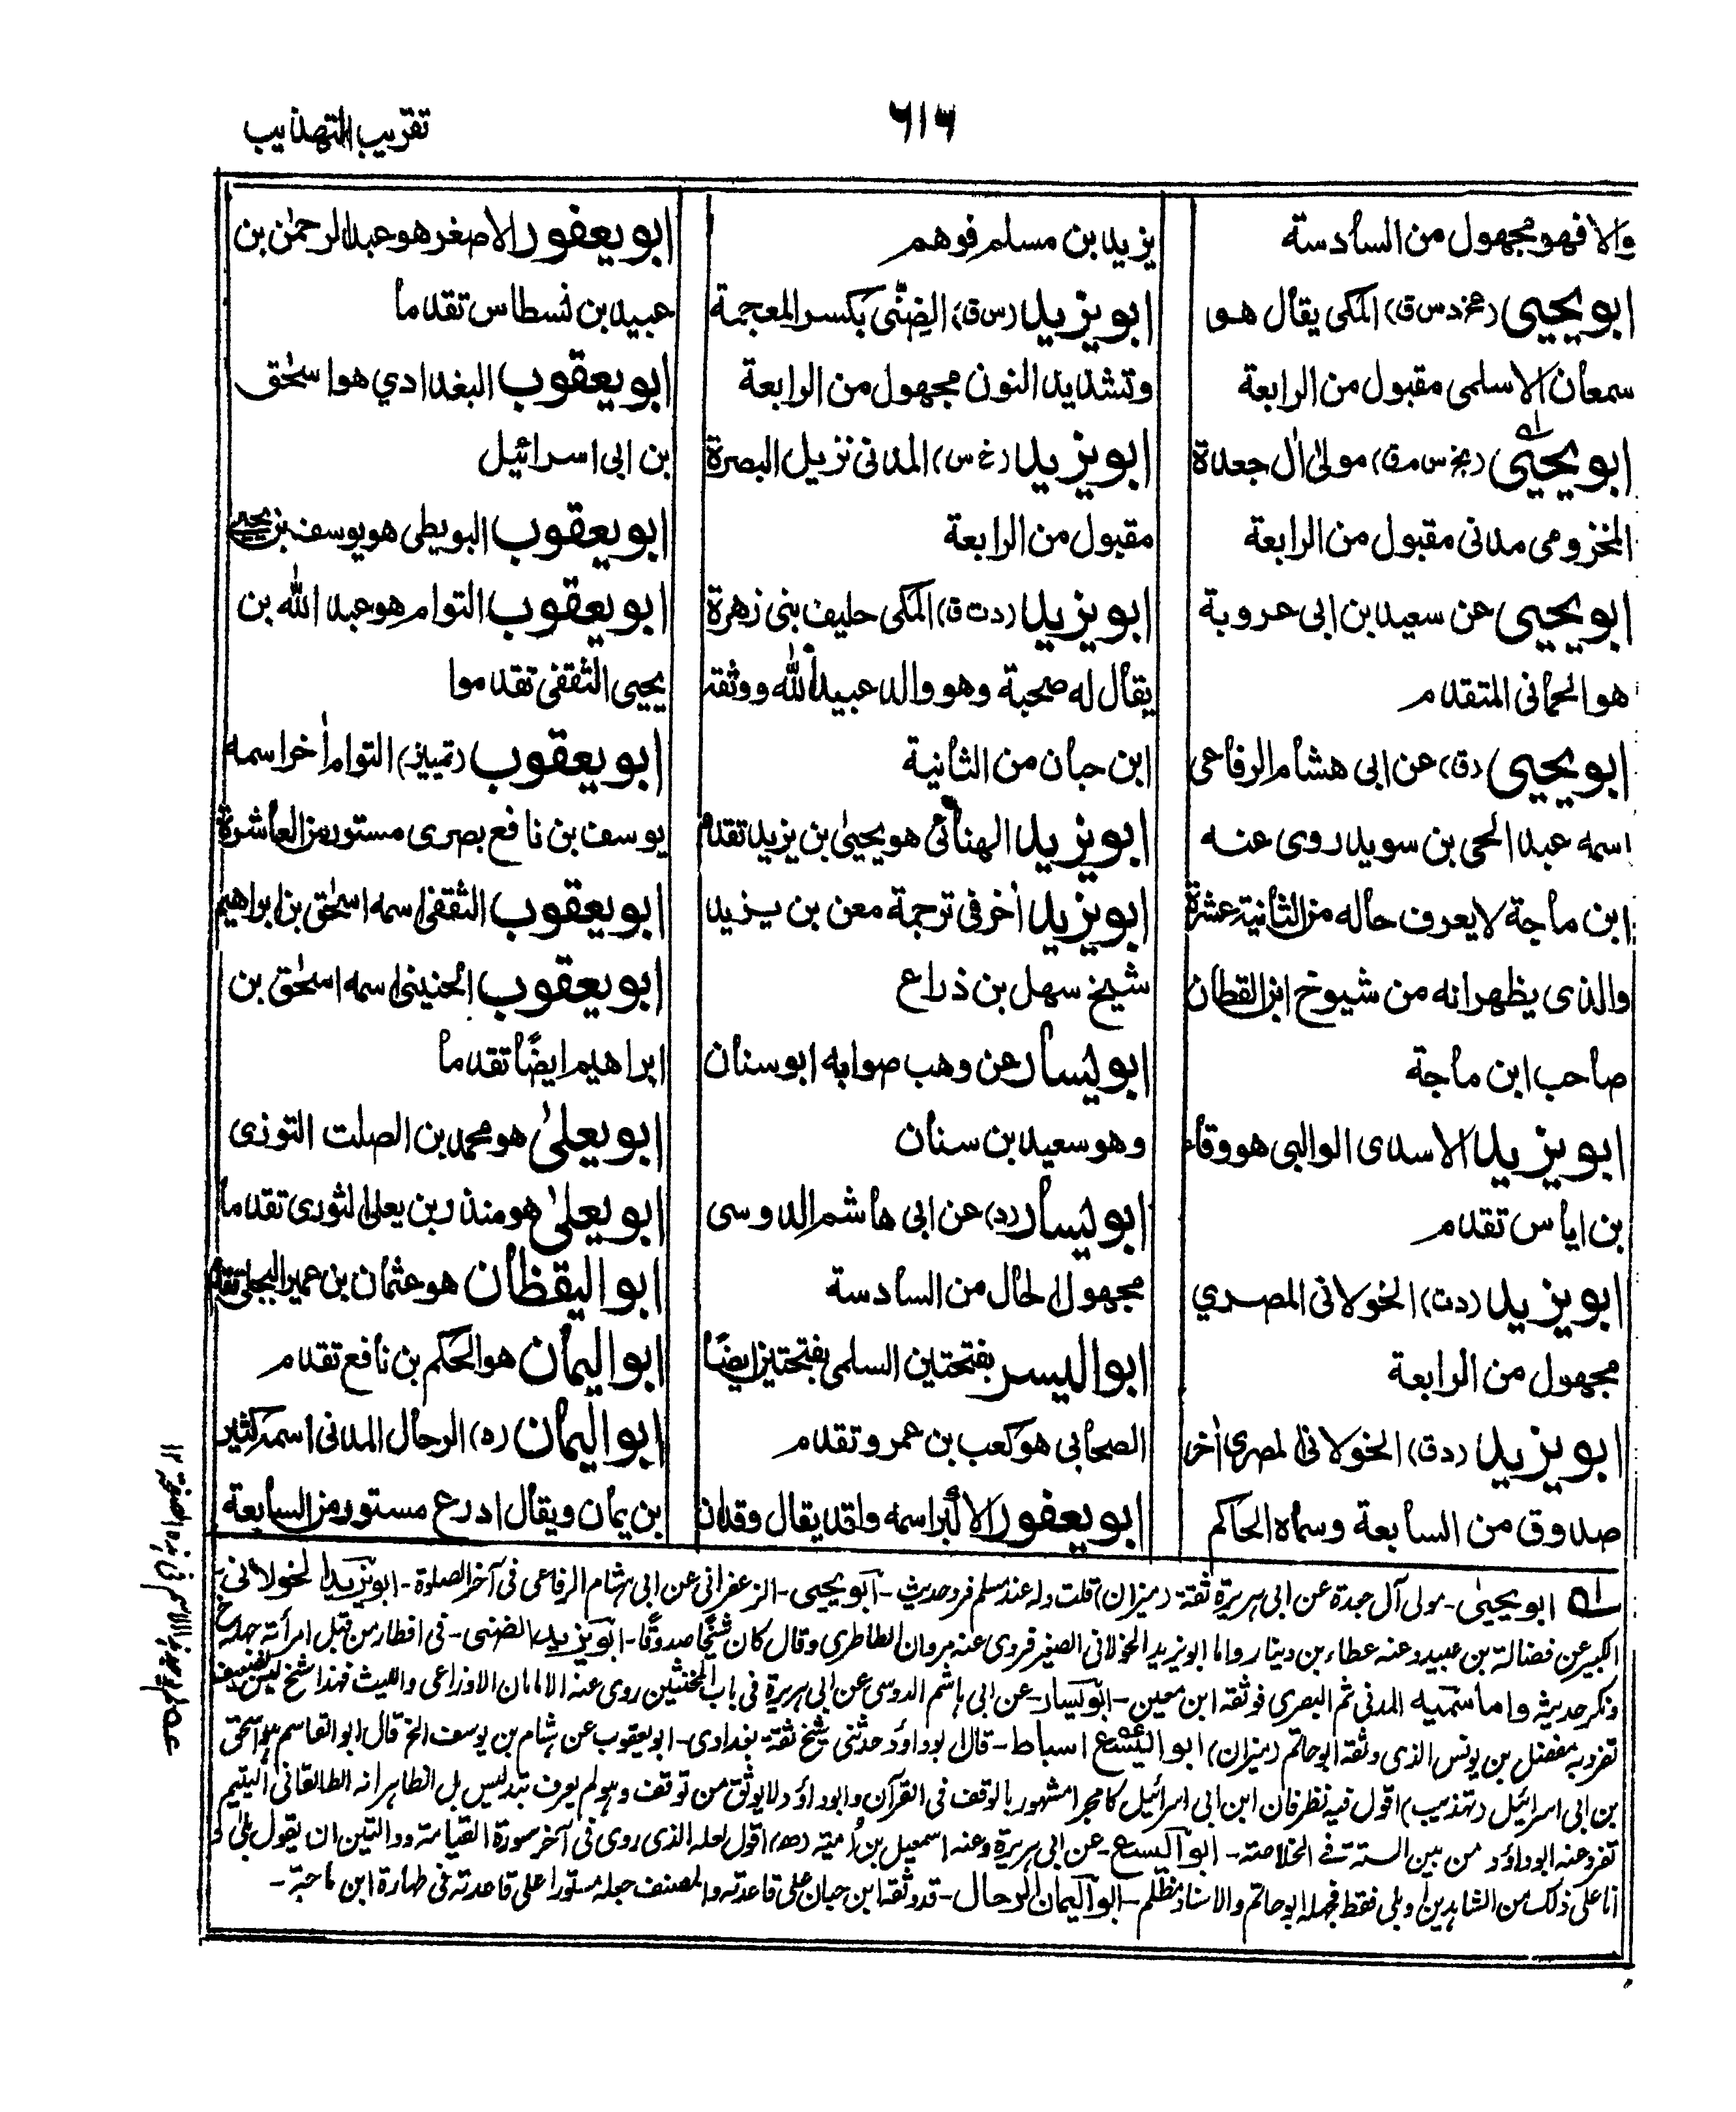 تقريب التهذيب
٦١٦
والا فهو مجهول من السادسة
ابو يحيى (عخ د س ق) المكى يقال هو
سمعان الاسلمى مقبول من الرابعة
ابو يحيى (بخ س م ق) مولى اٰل جعدة
المخزومى مدنى مقبول من الرابعة
ابو يحيى عن سعيد بن ابى عروبة
هو الحمانى المتقدم
ابو يحيى (ق) عن ابى هشام الرفاعى
اسمه عبد الحى بن سويد روى عنه
ابن ماجة لا يعرف حاله من الثانية عشرة
والذى يظهر انه من شيوخ ابن القطان
صاحب ابن ماجة
ابو يزيد الاسدى الوالبى هو وقاء
بن اياس تقدم
ابو يزيد (د ت) الخولانى المصري
مجهول من الرابعة
ابو يزيد (د ق) الخولانى المصرى اٰخر
صدوق من السابعة وسماه الحاكم
يزيد بن مسلم فوهم
ابو يزيد (س ق) الضِنّى بكسر المعجمة
وتشديد النون مجهول من الرابعة
ابو يزيد (خ س) المدنى نزيل البصرة
مقبول من الرابعة
ابو يزيد (د ت ق) المكى حليف بنى زهرة
يقال له صحبة وهو والد عبيد الله ووثقه
ابن حبان من الثانية
ابو يزيد الهنائى هو يحيىٰ بن يزيد تقدم
ابو يزيد اٰخر فى ترجمة معن بن يزيد
شيخ سهل بن ذراع
ابو يسار عن وهب صوابه ابو سنان
وهو سعيد بن سنان
ابو يسار (د) عن ابى هاشم الدوسى
مجهول الحال من السادسة
ابو اليسر بفتحتين السلمى بفتحتين ايضًا
الصحابى هو كعب بن عمرو تقدم
ابو يعفور الاكبر اسمه واقد يقال وقدان
ابو يعفور الاصغر هو عبد الرحمٰن بن
عبيد بن نسطاس تقدما
ابو يعقوب البغدادي هو اسحٰق
بن ابى اسرائيل
ابو يعقوب البويطى هو يوسف بن يحيى
ابو يعقوب التوام هو عبد الله بن
يحيى الثقفى تقدموا
ابو يعقوب (تمييز) التوام اٰخر اسمه
يوسف بن نافع بصرى مستور من العاشرة
ابو يعقوب الثقفى اسمه اسحٰق بن ابراهيم
ابو يعقوب الحنينى اسمه اسحٰق بن
ابراهيم ايضًا تقدما
ابو يعلىٰ هو محمد بن الصلت التوزى
ابو يعلىٰ هو منذر بن يعلى الثورى تقدما
ابو اليقظان هو عثمان بن عمير البجلى تقدم
ابو اليمان هو الحكم بن نافع تقدم
ابو اليمان (ه) الرحال المدنى اسمه كثير
بن يمان ويقال ادرع مستور من السابعة
له ابو يحيىٰ - مولى آل جعدة عن ابى هريرة ثقة (ميزان) قلت وله عند مسلم فرد حديث - ابو يحيى - الزعفرانى عن ابى هشام الرفاعى فى آخر الصلوة - ابو يزيد الخولانى -
الكبير عن فضالة بن عبيد وعنه عطاء بن دينار واما ابو يزيد الخولانى الصغير فروى عنه مروان الطاطرى وقال كان شيخًا صدوقًا - ابو يزيد الضنى - فى افطار من قبل امرأته
وذكر حديثه واما سميه المدنى ثم البصرى فوثقه ابن معين - ابو يسار - عن ابى هاشم الدوسى عن ابى هريرة فى باب المخنثين روى عنه الامامان الاوزاعى والليث فهذا شيخ ليس بضعيف
تفرد به مفضل بن يونس الذى وثقه ابو حاتم (ميزان) ابو اليسع اسباط - قال ابو داؤد حدثنى شيخ ثقة بغدادى - ابو يعقوب عن هشام بن يوسف الخ قال ابو القاسم هو اسحق
بن ابى اسرائيل (تهذيب) اقول فيه نظر فان ابن ابى اسرائيل كامجرا مشهور بالوقف فى القرآن وابو داؤد لا يوثق من توقف وهو لم يعرف بتدليس بل الظاهر انه الطالقانى اليتيم
تفرد عنه ابو داؤد من بين الستة فى الخلاصة - ابو اليسع - عن ابى هريرة وعنه اسمعيل بن اُمية (ه) اقول لعله الذى روى فى آخر سورة القيامة والتين ان يقول بلى و
انا على ذلك من الشاهدين او بلى فقط فجهله ابو حاتم والاسناد مظلم - ابو اليمان الرحال - قد وثقه ابن حبان على قاعدته والمصنف جعله مستورا على قاعدته فى طهارة ابن ماجة -